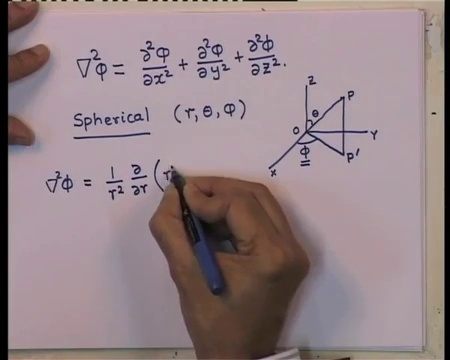 ∇²φ = ∂²φ/∂x² + ∂²φ/∂y² + ∂²φ/∂z².
Spherical (r, θ, φ)
z
P
θ
O
Y
φ
P'
X
∇²φ = 1/r² ∂/∂r (r